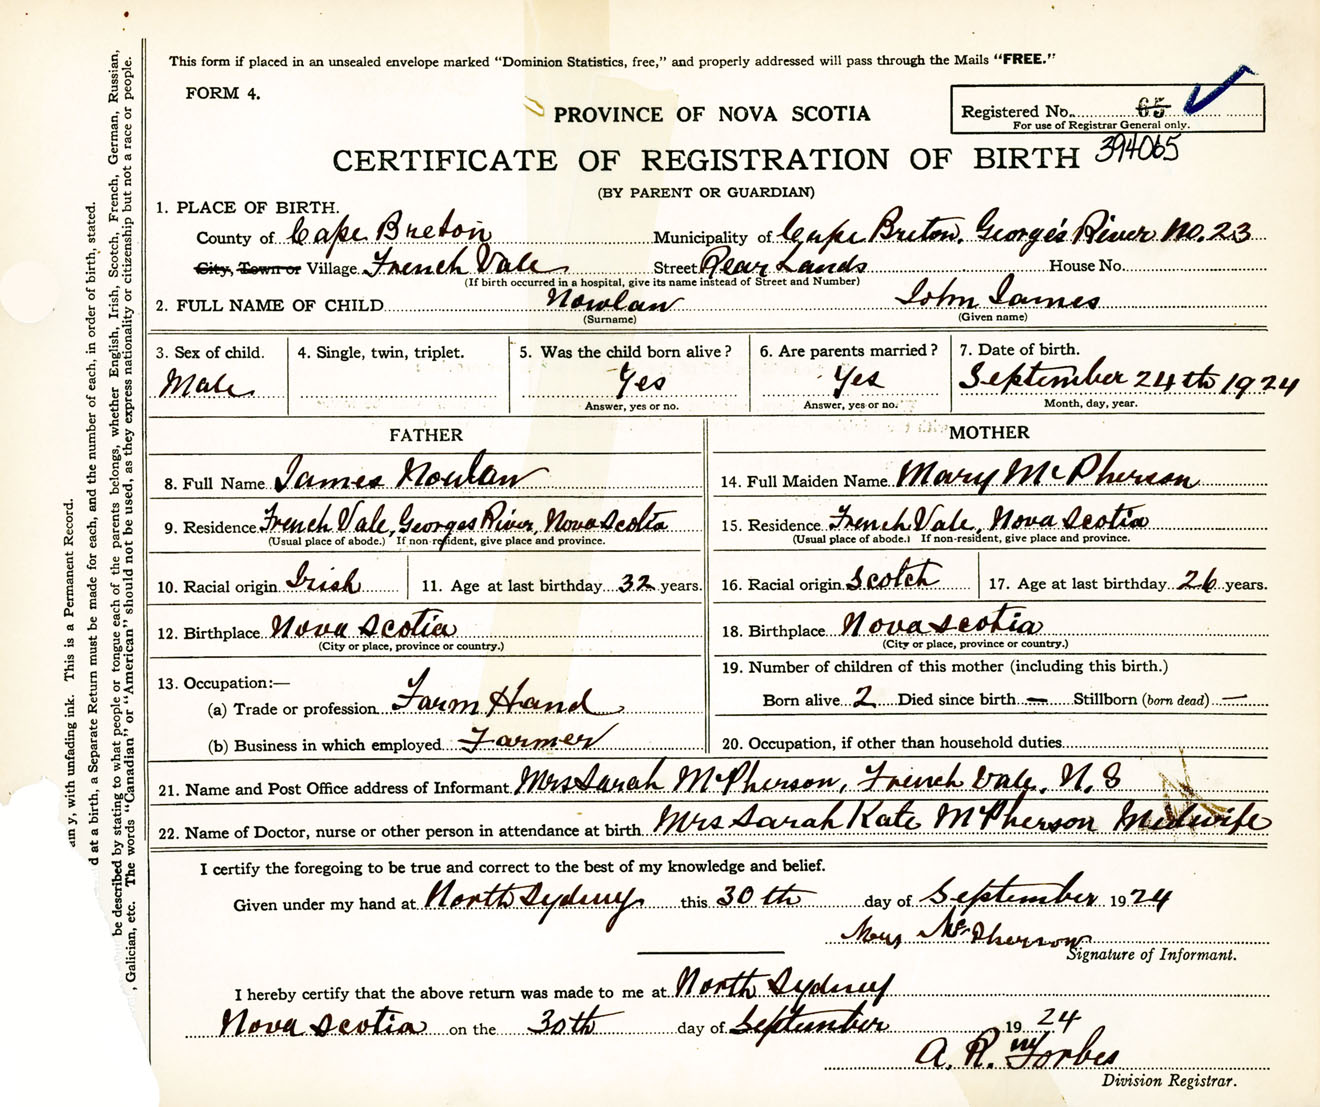 This form if placed in an unsealed envelope marked "Dominion Statistics, free," and properly addressed will pass through the Mails "FREE."
FORM 4.
PROVINCE OF NOVA SCOTIA
Registered No. 65
For use of Registrar General only.
CERTIFICATE OF REGISTRATION OF BIRTH 394065
(BY PARENT OR GUARDIAN)
1. PLACE OF BIRTH.
County of Cape Breton Municipality of Cape Breton, George's River No. 23
City, Town or Village French Vale Street Rear Lands House No.
(If birth occurred in a hospital, give its name instead of Street and Number)
2. FULL NAME OF CHILD Nowlan John James
(Surname) (Given name)
3. Sex of child. 4. Single, twin, triplet. 5. Was the child born alive? 6. Are parents married? 7. Date of birth.
Male Yes Yes September 24th 1924
Answer, yes or no. Answer, yes or no. Month, day, year.
FATHER MOTHER
8. Full Name James Nowlan 14. Full Maiden Name Mary McPherson
9. Residence French Vale, Georges River, Nova Scotia 15. Residence French Vale, Nova Scotia
(Usual place of abode.) If non-resident, give place and province. (Usual place of abode.) If non-resident, give place and province.
10. Racial origin Irish 11. Age at last birthday 32 years. 16. Racial origin Scotch 17. Age at last birthday 26 years.
12. Birthplace Nova Scotia 18. Birthplace Nova Scotia
(City or place, province or country.) (City or place, province or country.)
13. Occupation:— 19. Number of children of this mother (including this birth.)
(a) Trade or profession Farm Hand Born alive 2 Died since birth — Stillborn (born dead) —
(b) Business in which employed Farmer 20. Occupation, if other than household duties
21. Name and Post Office address of Informant Mrs Sarah McPherson, French Vale, N.S
22. Name of Doctor, nurse or other person in attendance at birth Mrs Sarah Kate McPherson Midwife
I certify the foregoing to be true and correct to the best of my knowledge and belief.
Given under my hand at North Sydney this 30th day of September 1924
Mrs McPherson
Signature of Informant.
I hereby certify that the above return was made to me at North Sydney
Nova Scotia on the 30th day of September 1924
A. R. Forbes
Division Registrar.
y, with unfading ink. This is a Permanent Record.
d at a birth, a Separate Return must be made for each, and the number of each, in order of birth, stated.
be described by stating to what people or tongue each of the parents belongs, whether English, Irish, Scotch, French, German, Russian,
, Galician, etc. The words "Canadian" or "American" should not be used, as they express nationality or citizenship but not a race or people.